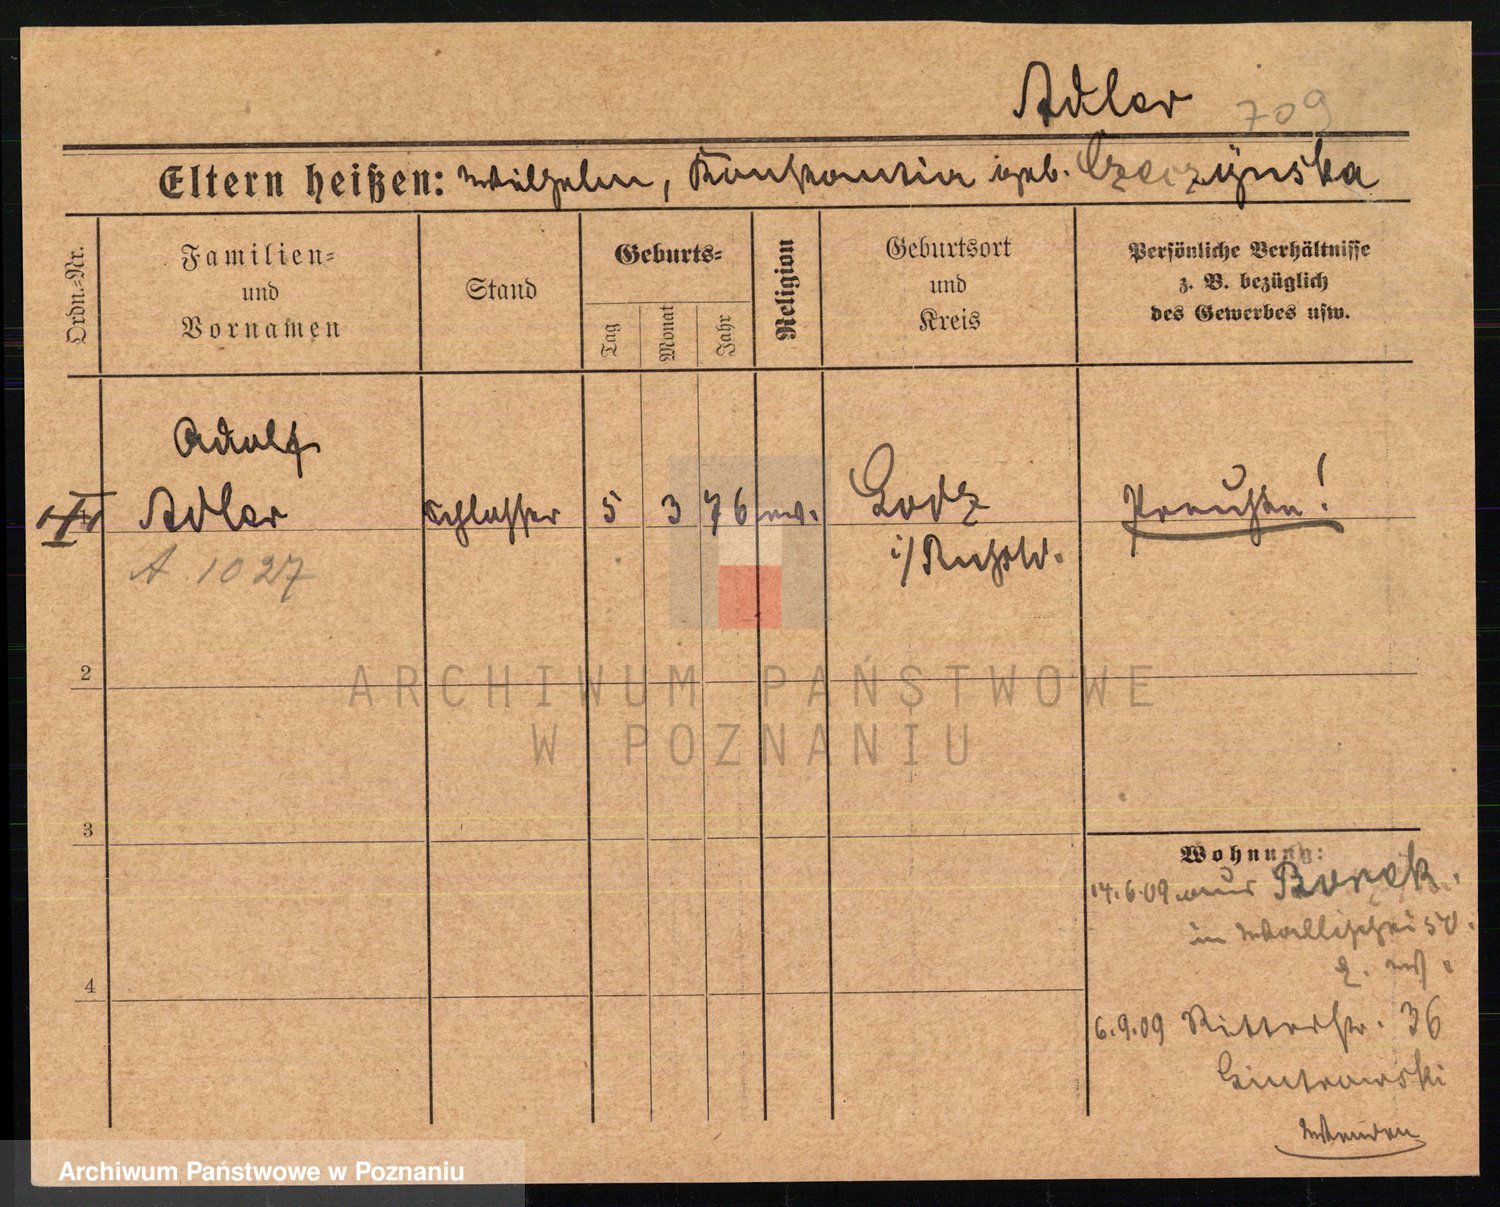 Adler 709
Eltern heißen: Wilhelm, Konstantia geb. Czeczynska
Ordn.-Nr.
Familien-
und
Vornamen
Stand
Geburts-
Tag
Monat
Jahr
Religion
Geburtsort
und
Kreis
Persönliche Verhältnisse
z. B. bezüglich
des Gewerbes usw.
Adolf
Adler Schlosser 5 3 76 ev. Lodz Preuße!
A 1027 i/Rußld.
2
ARCHIWUM PAŃSTWOWE
W POZNANIU
3
Wohnung:
14.6.09 aus Borek
in Wallischei 50.
4
6.9.09 Ritterstr. 36
Wenden
Archiwum Państwowe w Poznaniu